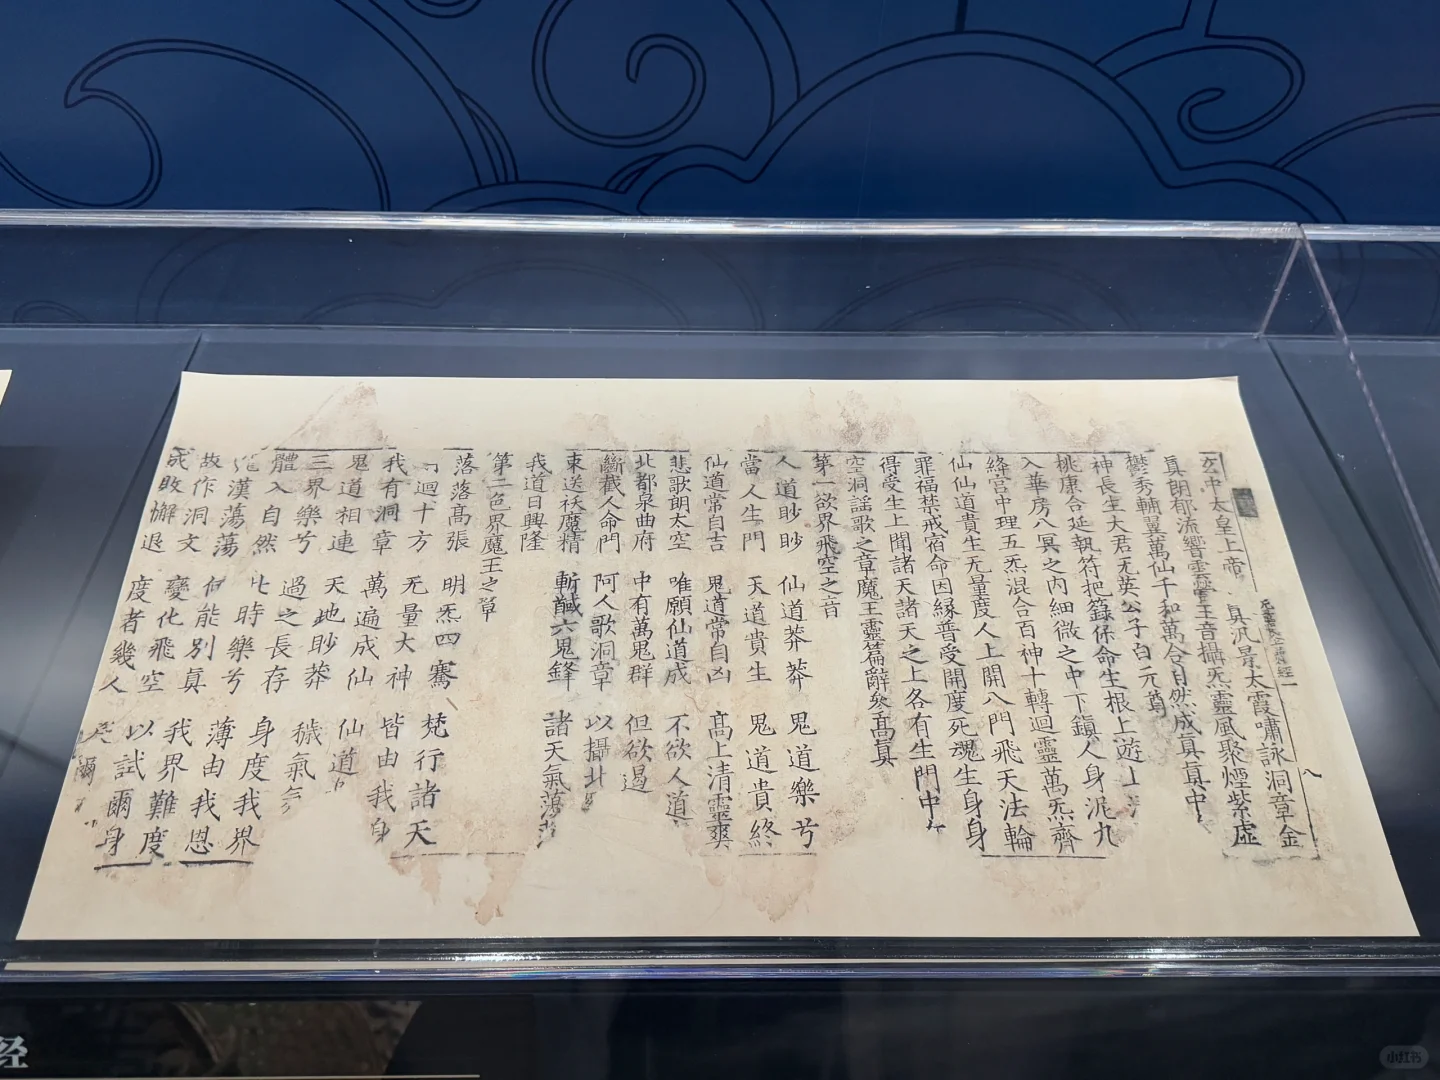 玄中太皇上帝 真汎景太霞嘯詠洞章金
真朗郁流響雲營玉音攝炁靈風聚煙紫虛
鬱秀輔翼萬仙千和萬合自然成真真中
神長生大君无英公子白元尊
桃康合延執符把籙保命生根上遊上
入華房八冥之内細微之中下鎮人身泥九
絳宮中理五炁混合百神十轉迴靈萬炁齊
仙仙道貴生无量度人上開八門飛天法輪
罪福禁戒宿命因緣普受開度死魂生身身
得受生上聞諸天諸天之上各有生門中
空洞謡歌之章魔王靈篇辭參髙真
第一欲界飛空之音
人道眇眇 仙道莽莽 鬼道樂兮
當人生門 天道貴生 鬼道貴終
仙道常自吉 鬼道常自凶 髙上清靈爽
悲歌朗太空 唯願仙道成 不欲人道
北都泉曲府 中有萬鬼群 但欲遏
斷截人命門 阿人歌洞章 以攝北
束送祅魔精 斬馘六鬼鋒 諸天氣蕩
我道日興隆
第二色界魔王之章
落落髙張 明炁四騫 梵行諸天
迴十方 无量大神 皆由我身
我有洞章 萬遍成仙 仙道
鬼道相連 天地眇莽 穢氣
三界樂兮 過之長存 身度我界
體入自然 時樂兮 薄由我恩
漢蕩蕩 能別真 我界難度
故作洞文 變化飛空 以試爾身
成敗懈退 度者幾人
八
经
小红书